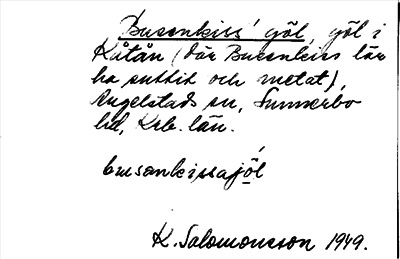 Busenkiss' göl, göl i
Kåtån (där Busenkiss lär
ha suttit och metat),
Angelstads sn, Sunnerbo
hd, Krb. län.
busankissajöl
K. Salomonsson 1949.